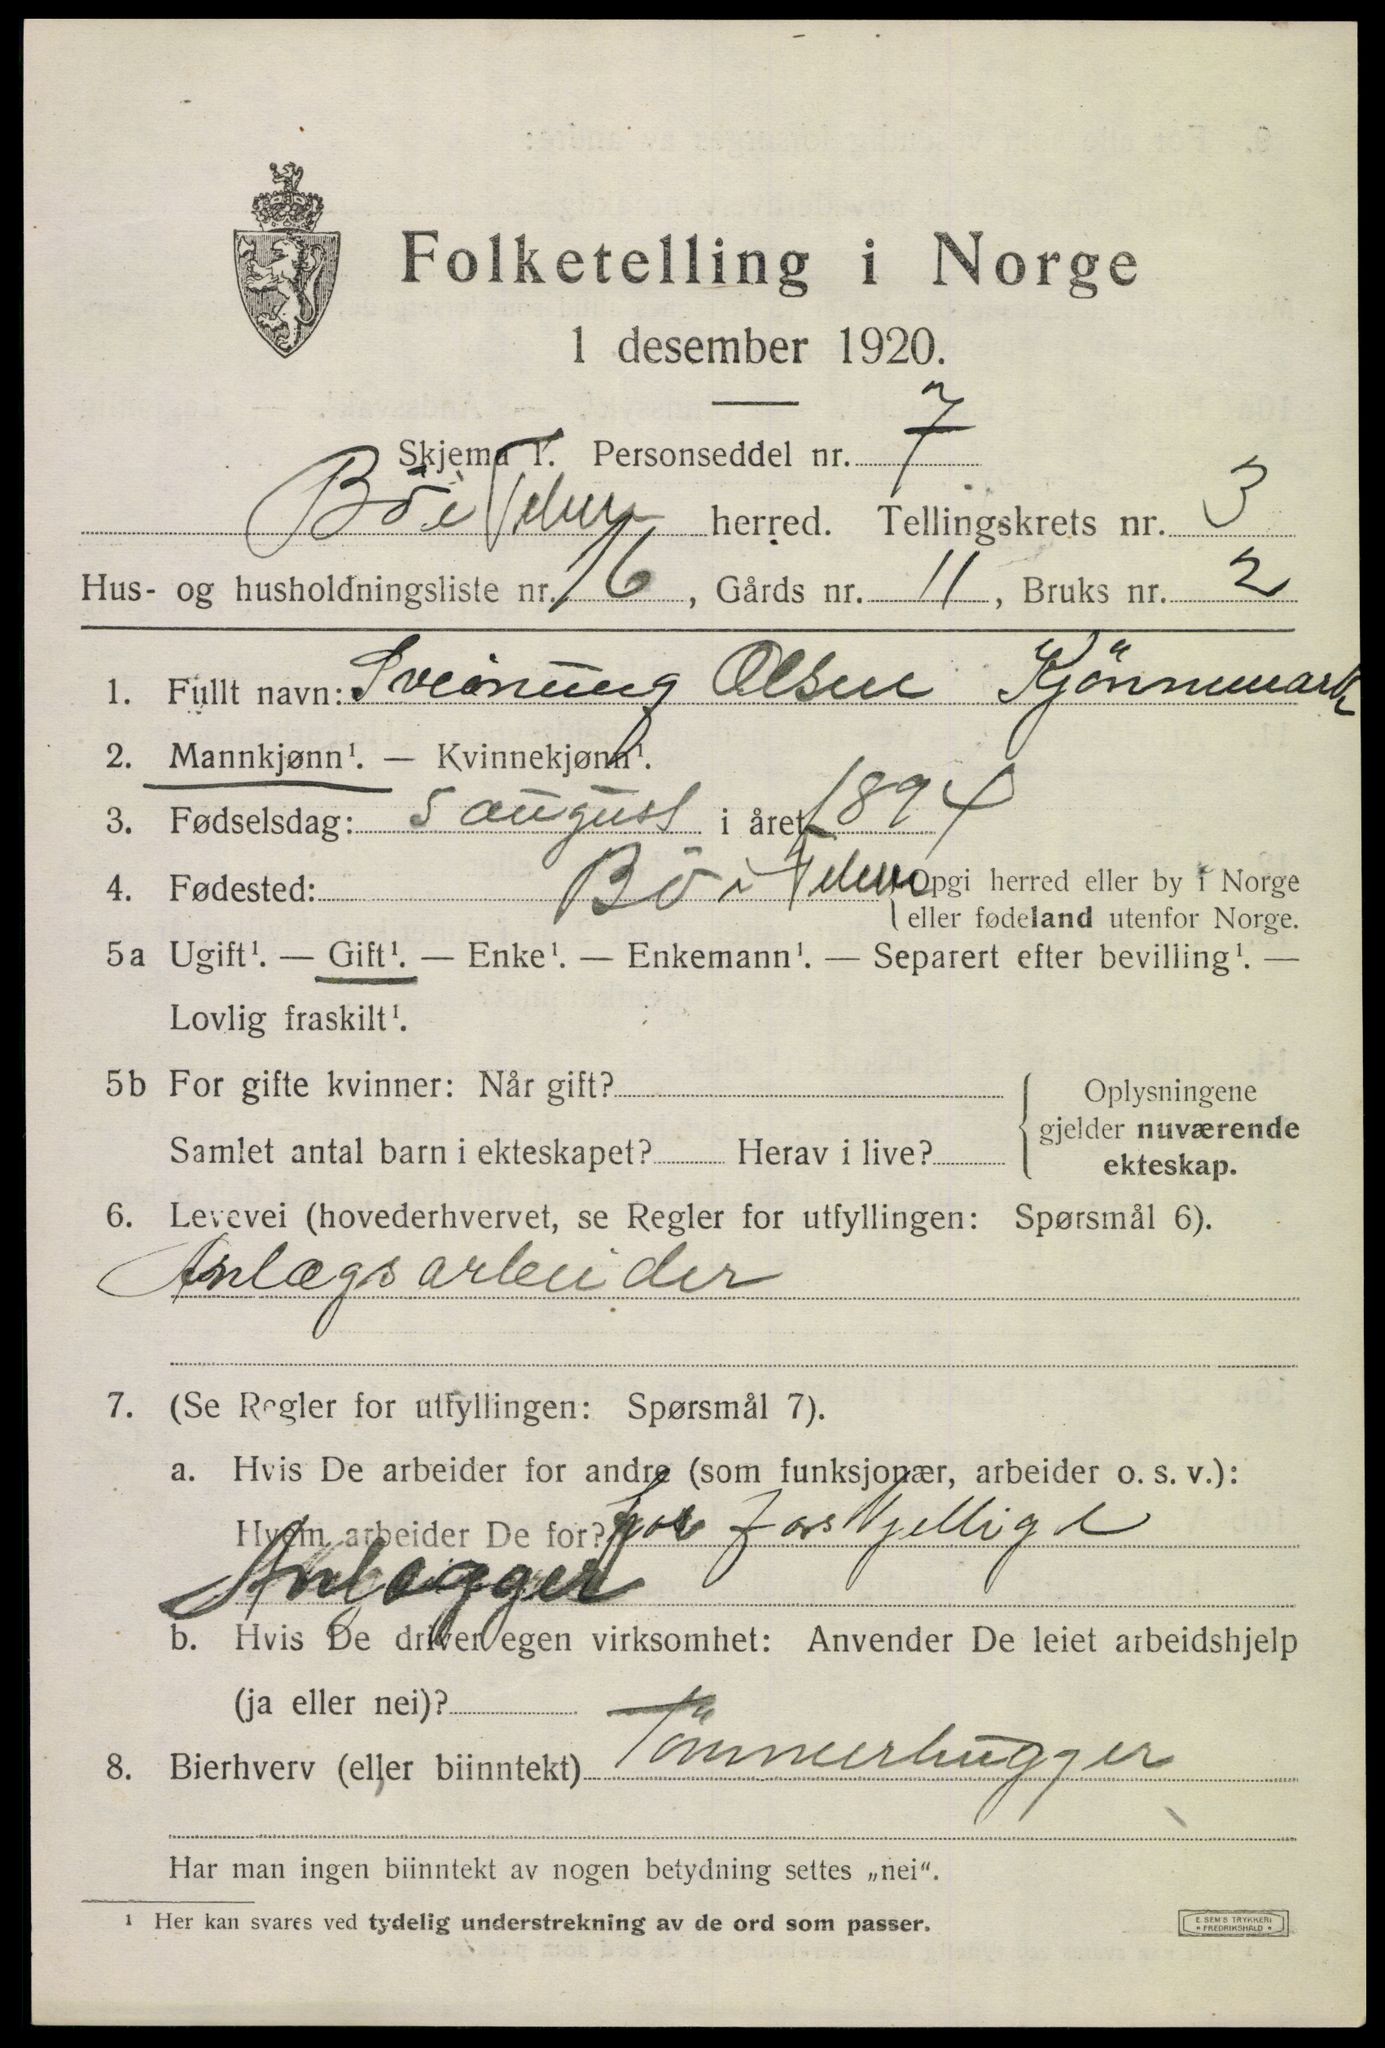 Folketelling i Norge
1 desember 1920.
Skjema 1. Personseddel nr. 7
Bö i Telem herred. Tellingskrets nr. 3
Hus- og husholdningsliste nr. 16, Gårds nr. 11, Bruks nr. 2
1. Fullt navn: Sveinung Olsen Kjönnemark
2. Mannkjønn¹. — Kvinnekjønn¹.
3. Fødselsdag: 5 august i året 1894
4. Fødested: Bö i Telem Opgi herred eller by i Norge
eller fødeland utenfor Norge.
5a Ugift¹. — Gift¹. — Enke¹. — Enkemann¹. — Separert efter bevilling¹. —
Lovlig fraskilt¹.
5b For gifte kvinner: Når gift?
Samlet antal barn i ekteskapet? Herav i live?
Oplysningene
gjelder nuværende
ekteskap.
6. Levevei (hovederhvervet, se Regler for utfyllingen: Spørsmål 6).
Anlægsarbeider
7. (Se Regler for utfyllingen: Spørsmål 7).
a. Hvis De arbeider for andre (som funksjonær, arbeider o. s. v.):
Hvem arbeider De for? for forskjellige
Anlægger
b. Hvis De driver egen virksomhet: Anvender De leiet arbeidshjelp
(ja eller nei)?
8. Bierhverv (eller biinntekt) Tömmerhugger
Har man ingen biinntekt av nogen betydning settes „nei".
¹ Her kan svares ved tydelig understrekning av de ord som passer.
E. SEM'S TRYKKERI
* FREDRIKSHALD *